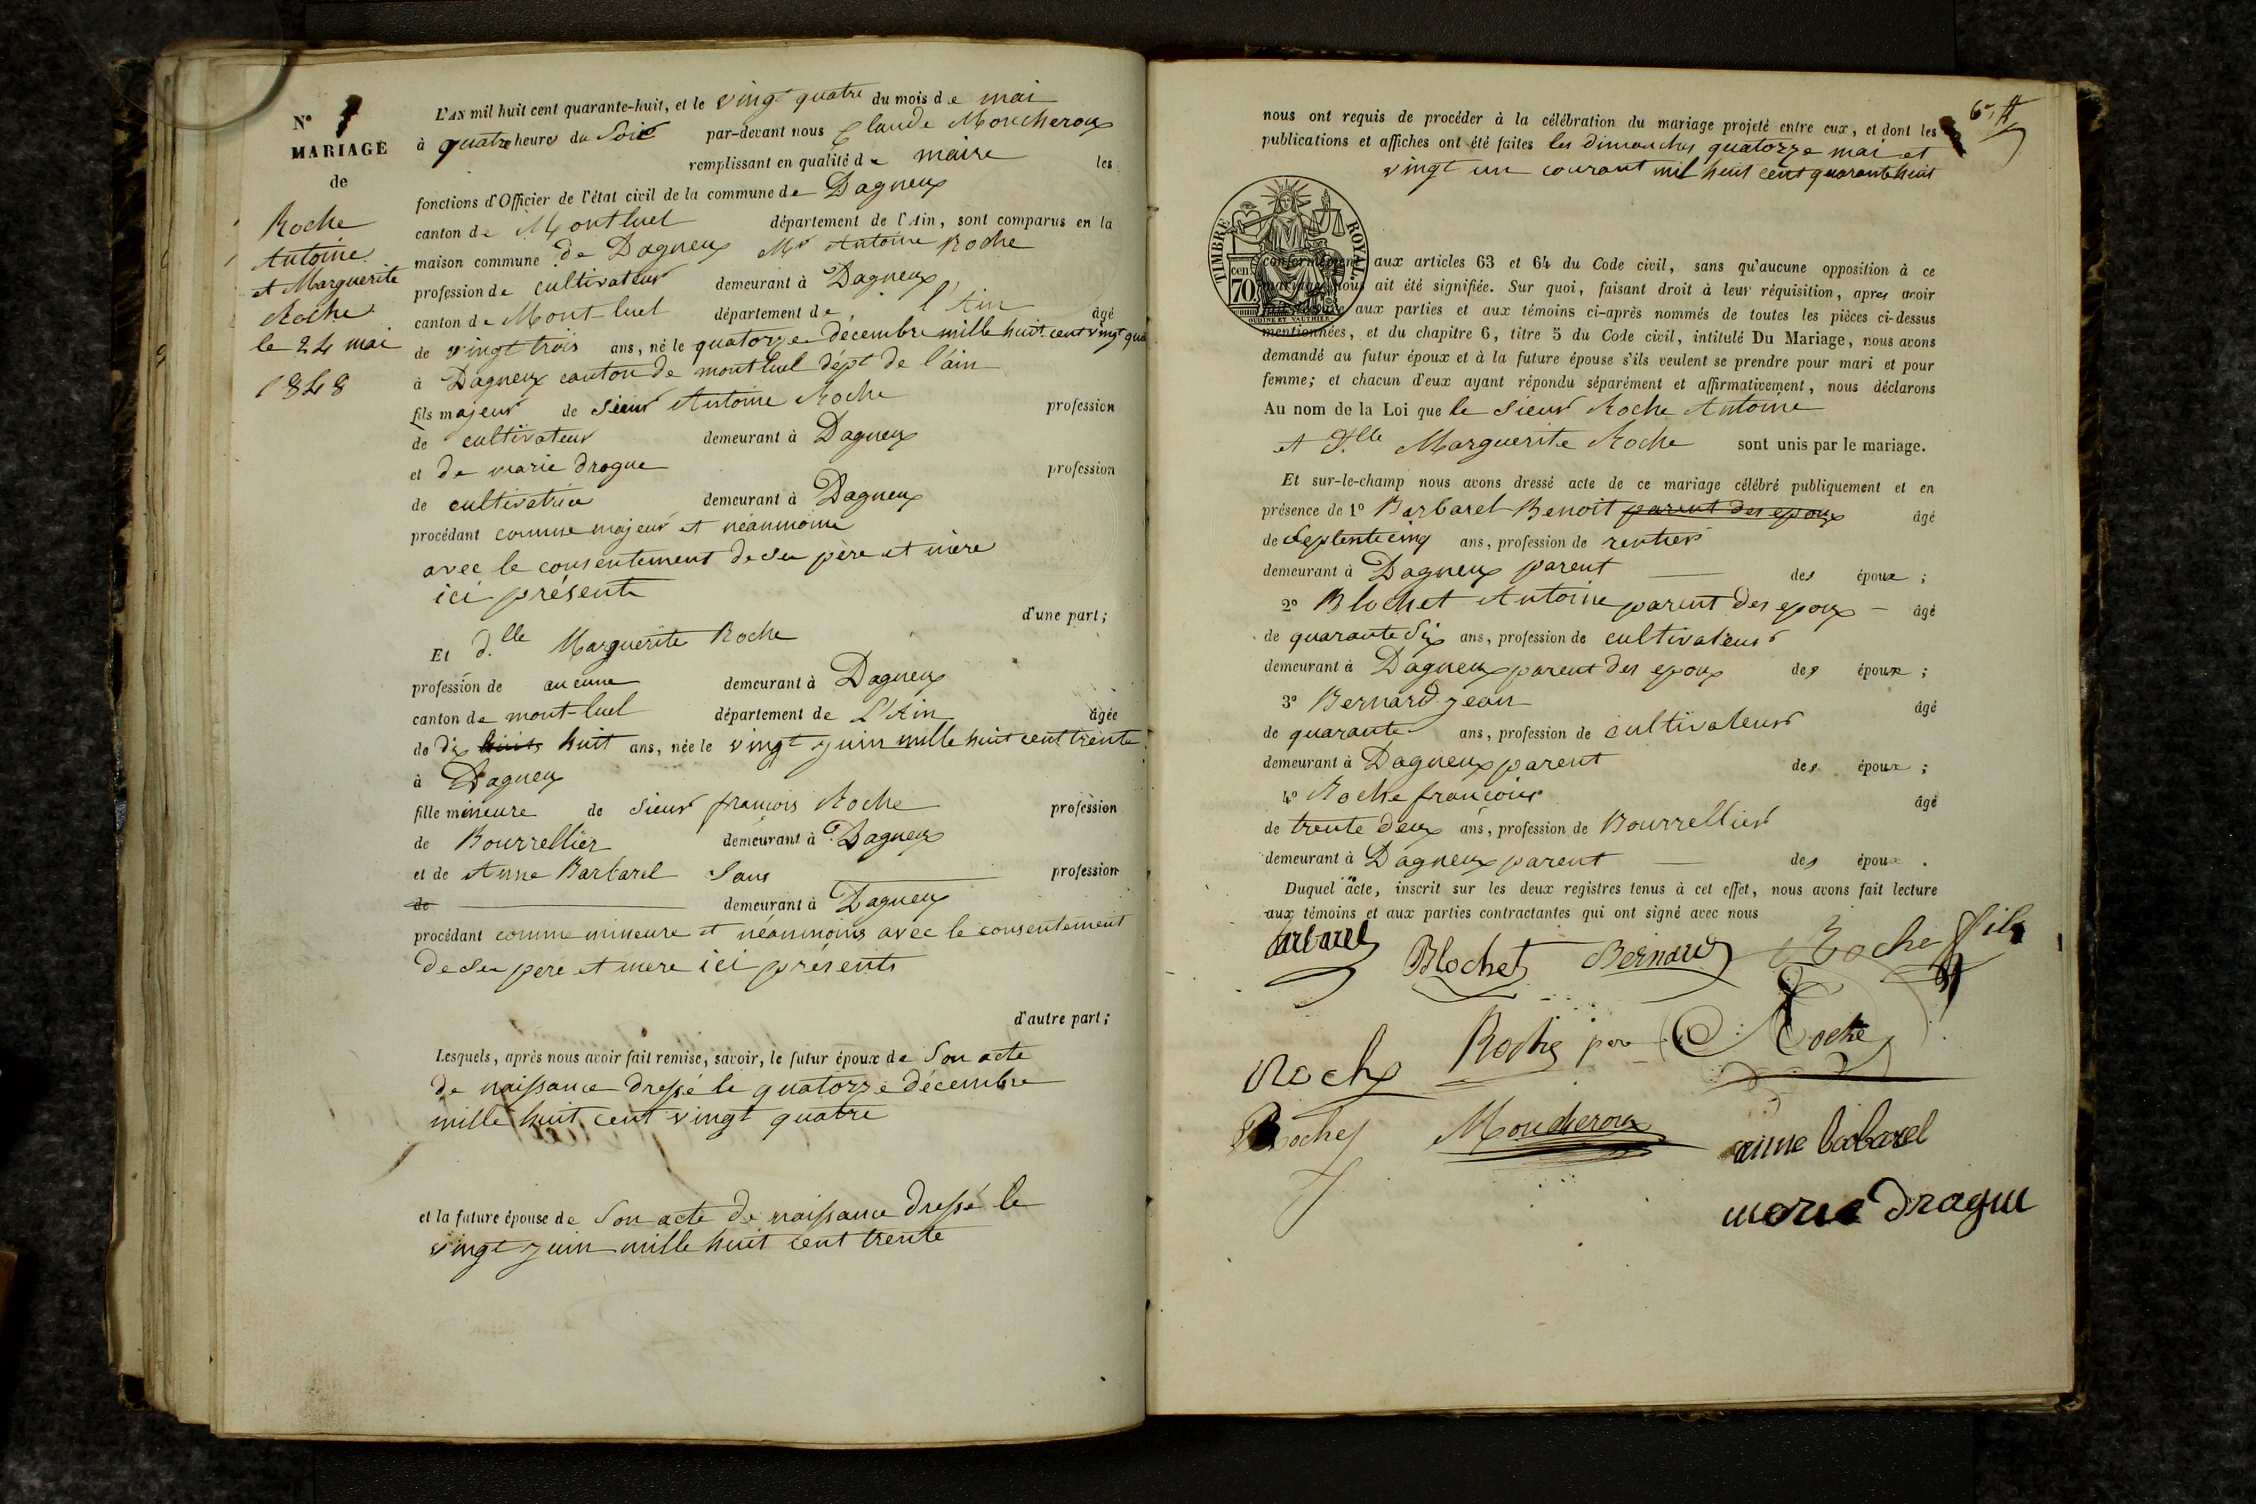 N° 7
MARIAGE
de
Roche
Antoine
et Marguerite
Roche
le 24 mai
1848
L'AN mil huit cent quarante-huit, et le vingt quatre du mois de mai
à quatre heures du Soir par-devant nous Claude Moucheroux
remplissant en qualité de maire les
fonctions d'Officier de l'état civil de la commune de Dagneux
canton de Montluel département de l'Ain, sont comparus en la
maison commune de Dagneux Mr Antoine Roche
profession de cultivateur demeurant à Dagneux
canton de Mont-luel département de l'Ain âgé
de vingt trois ans, né le quatorze décembre mille huit cent vingt qua
à Dagneux canton de montluel dépt de l'ain
fils majeur de sieur Antoine Roche profession
de cultivateur demeurant à Dagneux
et de marie drogue profession
de cultivatrice demeurant à Dagneux
procédant comme majeur et néanmoins
avec le consentement de ses père et mère
ici présents
d'une part;
Et d.lle Marguerite Roche
profession de aucune demeurant à Dagneux
canton de mont-luel département de L'Ain âgée
de dix huit huit ans, née le vingt juin mille huit cent trente
à Dagneux
fille mineure de sieur françois Roche profession
de Bourrellier demeurant à Dagneux
et de Anne Barbarel Sans profession
de demeurant à Dagneux
procédant comme mineure et néanmoins avec le consentement
de ses pere et mere ici présents
d'autre part;
Lesquels, après nous avoir fait remise, savoir, le futur époux de Son acte
de naissance dressé le quatorze décembre
mille huit cent vingt quatre
et la future épouse de Son acte de naissance dressé le
vingt juin mille huit cent trente
nous ont requis de procéder à la célébration du mariage projeté entre eux, et dont les
publications et affiches ont été faites les dimanches quatorze mai et
vingt un courant mil huit cent quarante huit
TIMBRE ROYAL.
70 cen
conformément aux articles 63 et 64 du Code civil, sans qu'aucune opposition à ce
mariage nous ait été signifiée. Sur quoi, faisant droit à leur réquisition, apres avoir
aux parties et aux témoins ci-après nommés de toutes les pièces ci-dessus
mentionnées, et du chapitre 6, titre 5 du Code civil, intitulé Du Mariage, nous avons
demandé au futur époux et à la future épouse s'ils veulent se prendre pour mari et pour
femme; et chacun d'eux ayant répondu séparément et affirmativement, nous déclarons
Au nom de la Loi que le sieur Roche Antoine
et D.lle Marguerite Roche sont unis par le mariage.
Et sur-le-champ nous avons dressé acte de ce mariage célébré publiquement et en
présence de 1° Barbarel Benoit parent des epoux âgé
de Septente cinq ans, profession de rentier
demeurant à Dagneux parent des époux ;
2° Blochet Antoine parent des epoux âgé
de quarante Six ans, profession de cultivateur
demeurant à Dagneux parent des epoux des époux ;
3° Bernard jean âgé
de quarante ans, profession de cultivateur
demeurant à Dagneux parent des époux ;
4° Roche françois âgé
de trente deux ans, profession de Bourrellier
demeurant à Dagneux parent des époux .
Duquel acte, inscrit sur les deux registres tenus à cet effet, nous avons fait lecture
aux témoins et aux parties contractantes qui ont signé avec nous
barbarel Blochet Bernard Roche fils
Roche Roche pere Roche
Roche Moucheroux anne babarel
marie dragui